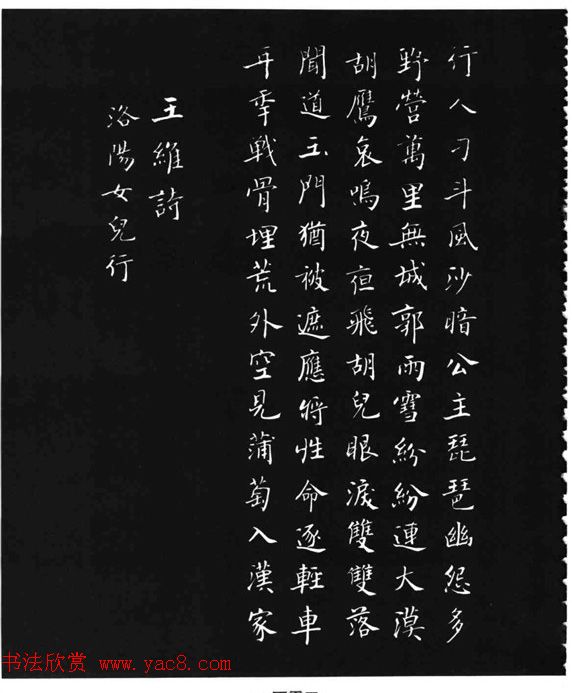 行人刁斗風沙暗公主琵琶幽怨多
野營萬里無城郭雨雪紛紛連大漠
胡鷹哀鳴夜亱飛胡兒眼淚雙雙落
聞道玉門猶被遮應將性命逐輕車
年年戰骨埋荒外空見蒲萄入漢家
王維詩
洛陽女兒行
书法欣赏 www.yac8.com